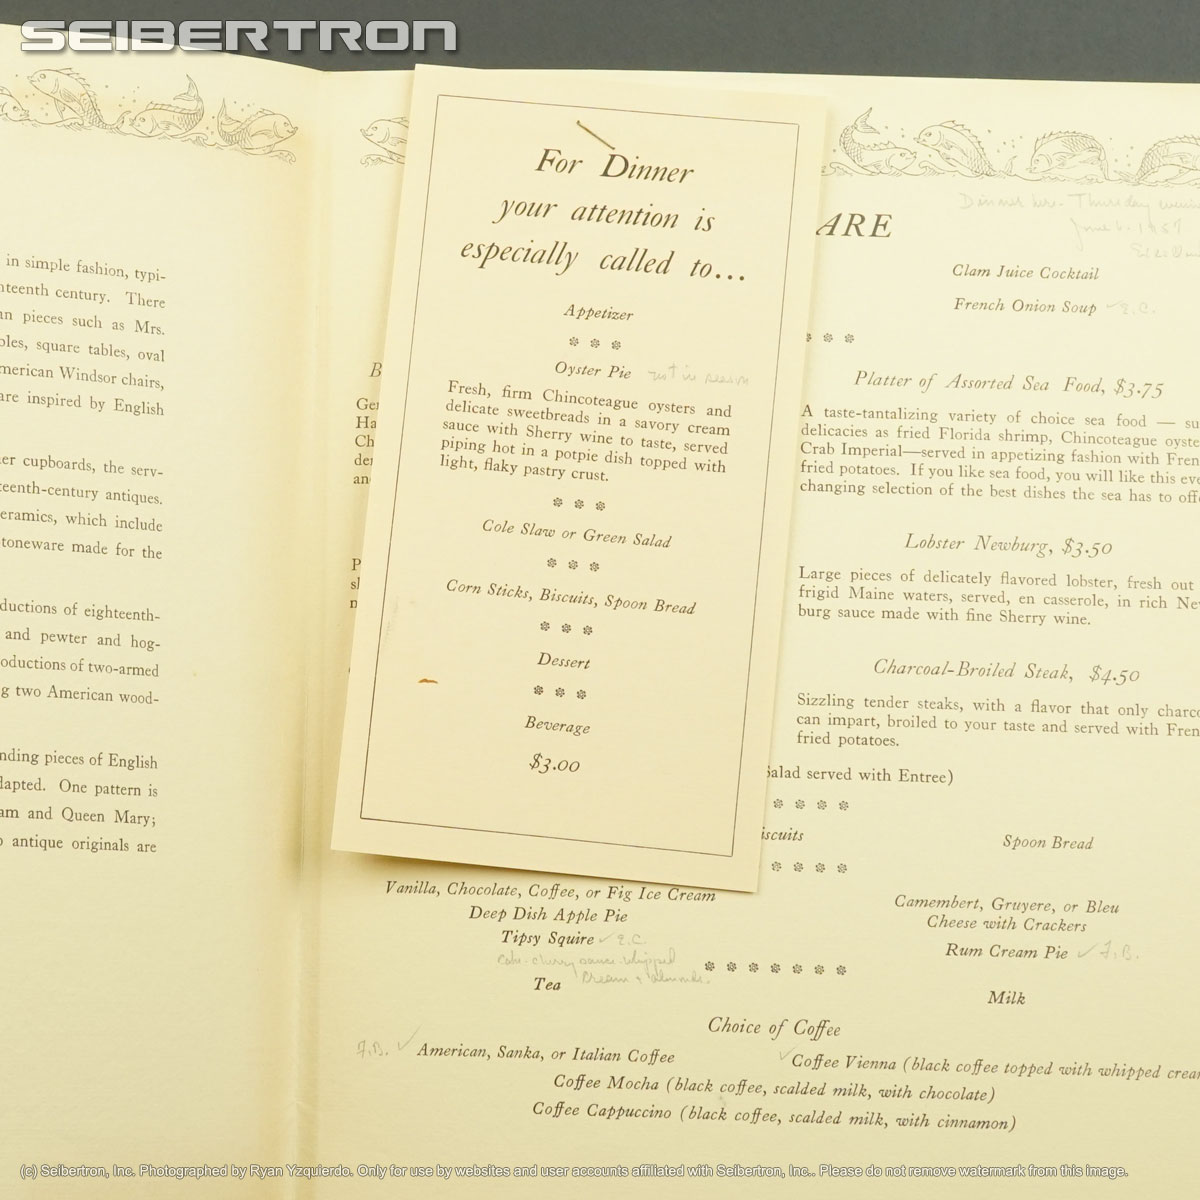 SEIBERTRON
in simple fashion, typi-
teenth century. There
pieces such as Mrs.
square tables, oval
merican Windsor chairs,
are inspired by English
cupboards, the serv-
teenth-century antiques.
eramics, which include
toneware made for the
ductions of eighteenth-
and pewter and hog-
oductions of two-armed
g two American wood-
nding pieces of English
dapted. One pattern is
am and Queen Mary;
antique originals are
For Dinner
your attention is
especially called to...
Appetizer
Oyster Pie not in season
Fresh, firm Chincoteague oysters and
delicate sweetbreads in a savory cream
sauce with Sherry wine to taste, served
piping hot in a potpie dish topped with
light, flaky pastry crust.
Cole Slaw or Green Salad
Corn Sticks, Biscuits, Spoon Bread
Dessert
Beverage
$3.00
B
Ger
Ha
Ch
der
an
P
sl
ARE
Dinner here - Thursday
June
Clam Juice Cocktail
French Onion Soup ✓ E.C.
Platter of Assorted Sea Food, $3.75
A taste-tantalizing variety of choice sea food — su
delicacies as fried Florida shrimp, Chincoteague oyste
Crab Imperial—served in appetizing fashion with Fren
fried potatoes. If you like sea food, you will like this eve
changing selection of the best dishes the sea has to off
Lobster Newburg, $3.50
Large pieces of delicately flavored lobster, fresh out
frigid Maine waters, served, en casserole, in rich New
burg sauce made with fine Sherry wine.
Charcoal-Broiled Steak, $4.50
Sizzling tender steaks, with a flavor that only charco
can impart, broiled to your taste and served with Fren
fried potatoes.
Salad served with Entree)
iscuits
Spoon Bread
Vanilla, Chocolate, Coffee, or Fig Ice Cream
Deep Dish Apple Pie
Tipsy Squire ✓ E.C.
cake-cherry sauce-whipped
cream + almonds.
Camembert, Gruyere, or Bleu
Cheese with Crackers
Rum Cream Pie ✓ F.B.
Tea
Milk
Choice of Coffee
F.B. ✓ American, Sanka, or Italian Coffee
✓ Coffee Vienna (black coffee topped with whipped crea
Coffee Mocha (black coffee, scalded milk, with chocolate)
Coffee Cappuccino (black coffee, scalded milk, with cinnamon)
(c) Seibertron, Inc. Photographed by Ryan Yzquierdo. Only for use by websites and user accounts affiliated with Seibertron, Inc.. Please do not remove watermark from this image.